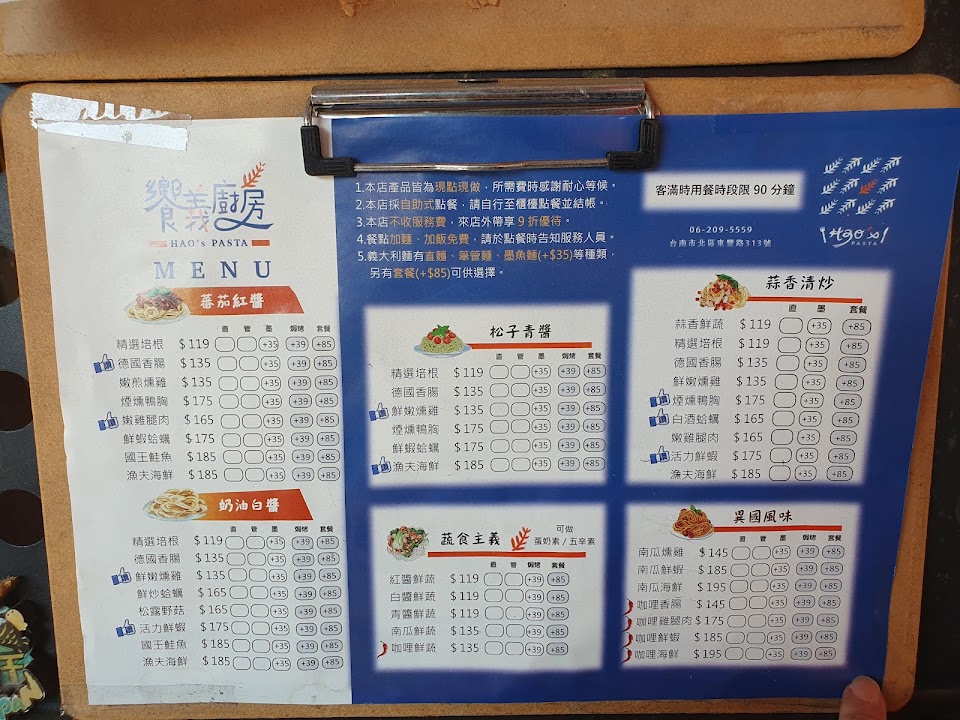 饗義廚房
HAO's PASTA
MENU
蕃茄紅醬
直 管 墨 焗烤 套餐
精選培根 $119 +35 +39 +85
德國香腸 $135 +35 +39 +85
嫩煎燻雞 $135 +35 +39 +85
煙燻鴨胸 $175 +35 +39 +85
嫩雞腿肉 $165 +35 +39 +85
鮮蝦蛤蠣 $175 +35 +39 +85
國王鮭魚 $185 +35 +39 +85
漁夫海鮮 $185 +35 +39 +85
奶油白醬
直 管 墨 焗烤 套餐
精選培根 $119 +35 +39 +85
德國香腸 $135 +35 +39 +85
鮮嫩燻雞 $135 +35 +39 +85
鮮炒蛤蠣 $165 +35 +39 +85
松露野菇 $165 +35 +39 +85
活力鮮蝦 $175 +35 +39 +85
國王鮭魚 $185 +35 +39 +85
漁夫海鮮 $185 +35 +39 +85
1.本店產品皆為現點現做，所需費時感謝耐心等候。
2.本店採自助式點餐，請自行至櫃檯點餐並結帳。
3.本店不收服務費，來店外帶享 9 折優待。
4.餐點加麵、加飯免費，請於點餐時告知服務人員。
5.義大利麵有直麵、筆管麵、墨魚麵(+$35)等種類，
另有套餐(+$85)可供選擇。
松子青醬
直 管 墨 焗烤 套餐
精選培根 $119 +35 +39 +85
德國香腸 $135 +35 +39 +85
鮮嫩燻雞 $135 +35 +39 +85
煙燻鴨胸 $175 +35 +39 +85
鮮蝦蛤蠣 $175 +35 +39 +85
漁夫海鮮 $185 +35 +39 +85
蔬食主義
可做
蛋奶素 / 五辛素
直 管 焗烤 套餐
紅醬鮮蔬 $119 +39 +85
白醬鮮蔬 $119 +39 +85
青醬鮮蔬 $119 +39 +85
南瓜鮮蔬 $135 +39 +85
咖哩鮮蔬 $135 +39 +85
客滿時用餐時段限 90 分鐘
06-209-5559
台南市北區東豐路313號
Hao's
PASTA
蒜香清炒
直 墨 套餐
蒜香鮮蔬 $119 +35 +85
精選培根 $119 +35 +85
德國香腸 $135 +35 +85
鮮嫩燻雞 $135 +35 +85
煙燻鴨胸 $175 +35 +85
白酒蛤蠣 $165 +35 +85
嫩雞腿肉 $165 +35 +85
活力鮮蝦 $175 +35 +85
漁夫海鮮 $185 +35 +85
異國風味
直 管 焗烤 套餐
南瓜燻雞 $145 +39 +85
南瓜鮮蝦 $185 +39 +85
南瓜海鮮 $195 +39 +85
咖哩香腸 $145 +39 +85
咖哩雞腿肉 $175 +39 +85
咖哩鮮蝦 $185 +39 +85
咖哩海鮮 $195 +39 +85